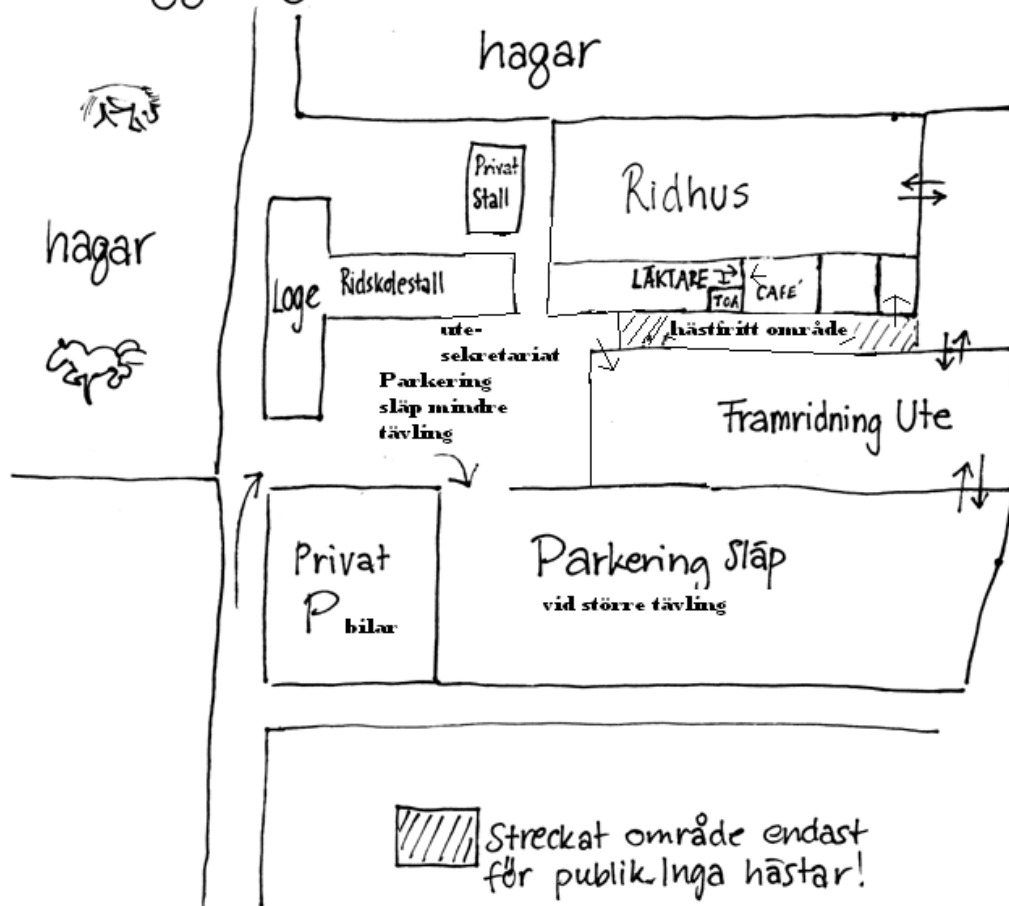 hagar
Privat
Stall
Ridhus
hagar
Loge
Ridskolestall
LÄKTARE
TOA
CAFE'
hästfritt område
ute-
sekretariat
Parkering
släp mindre
tävling
Framridning Ute
Privat
P bilar
Parkering Släp
vid större tävling
Streckat område endast
för publik. Inga hästar!